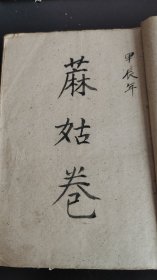 甲辰年
蔴姑卷